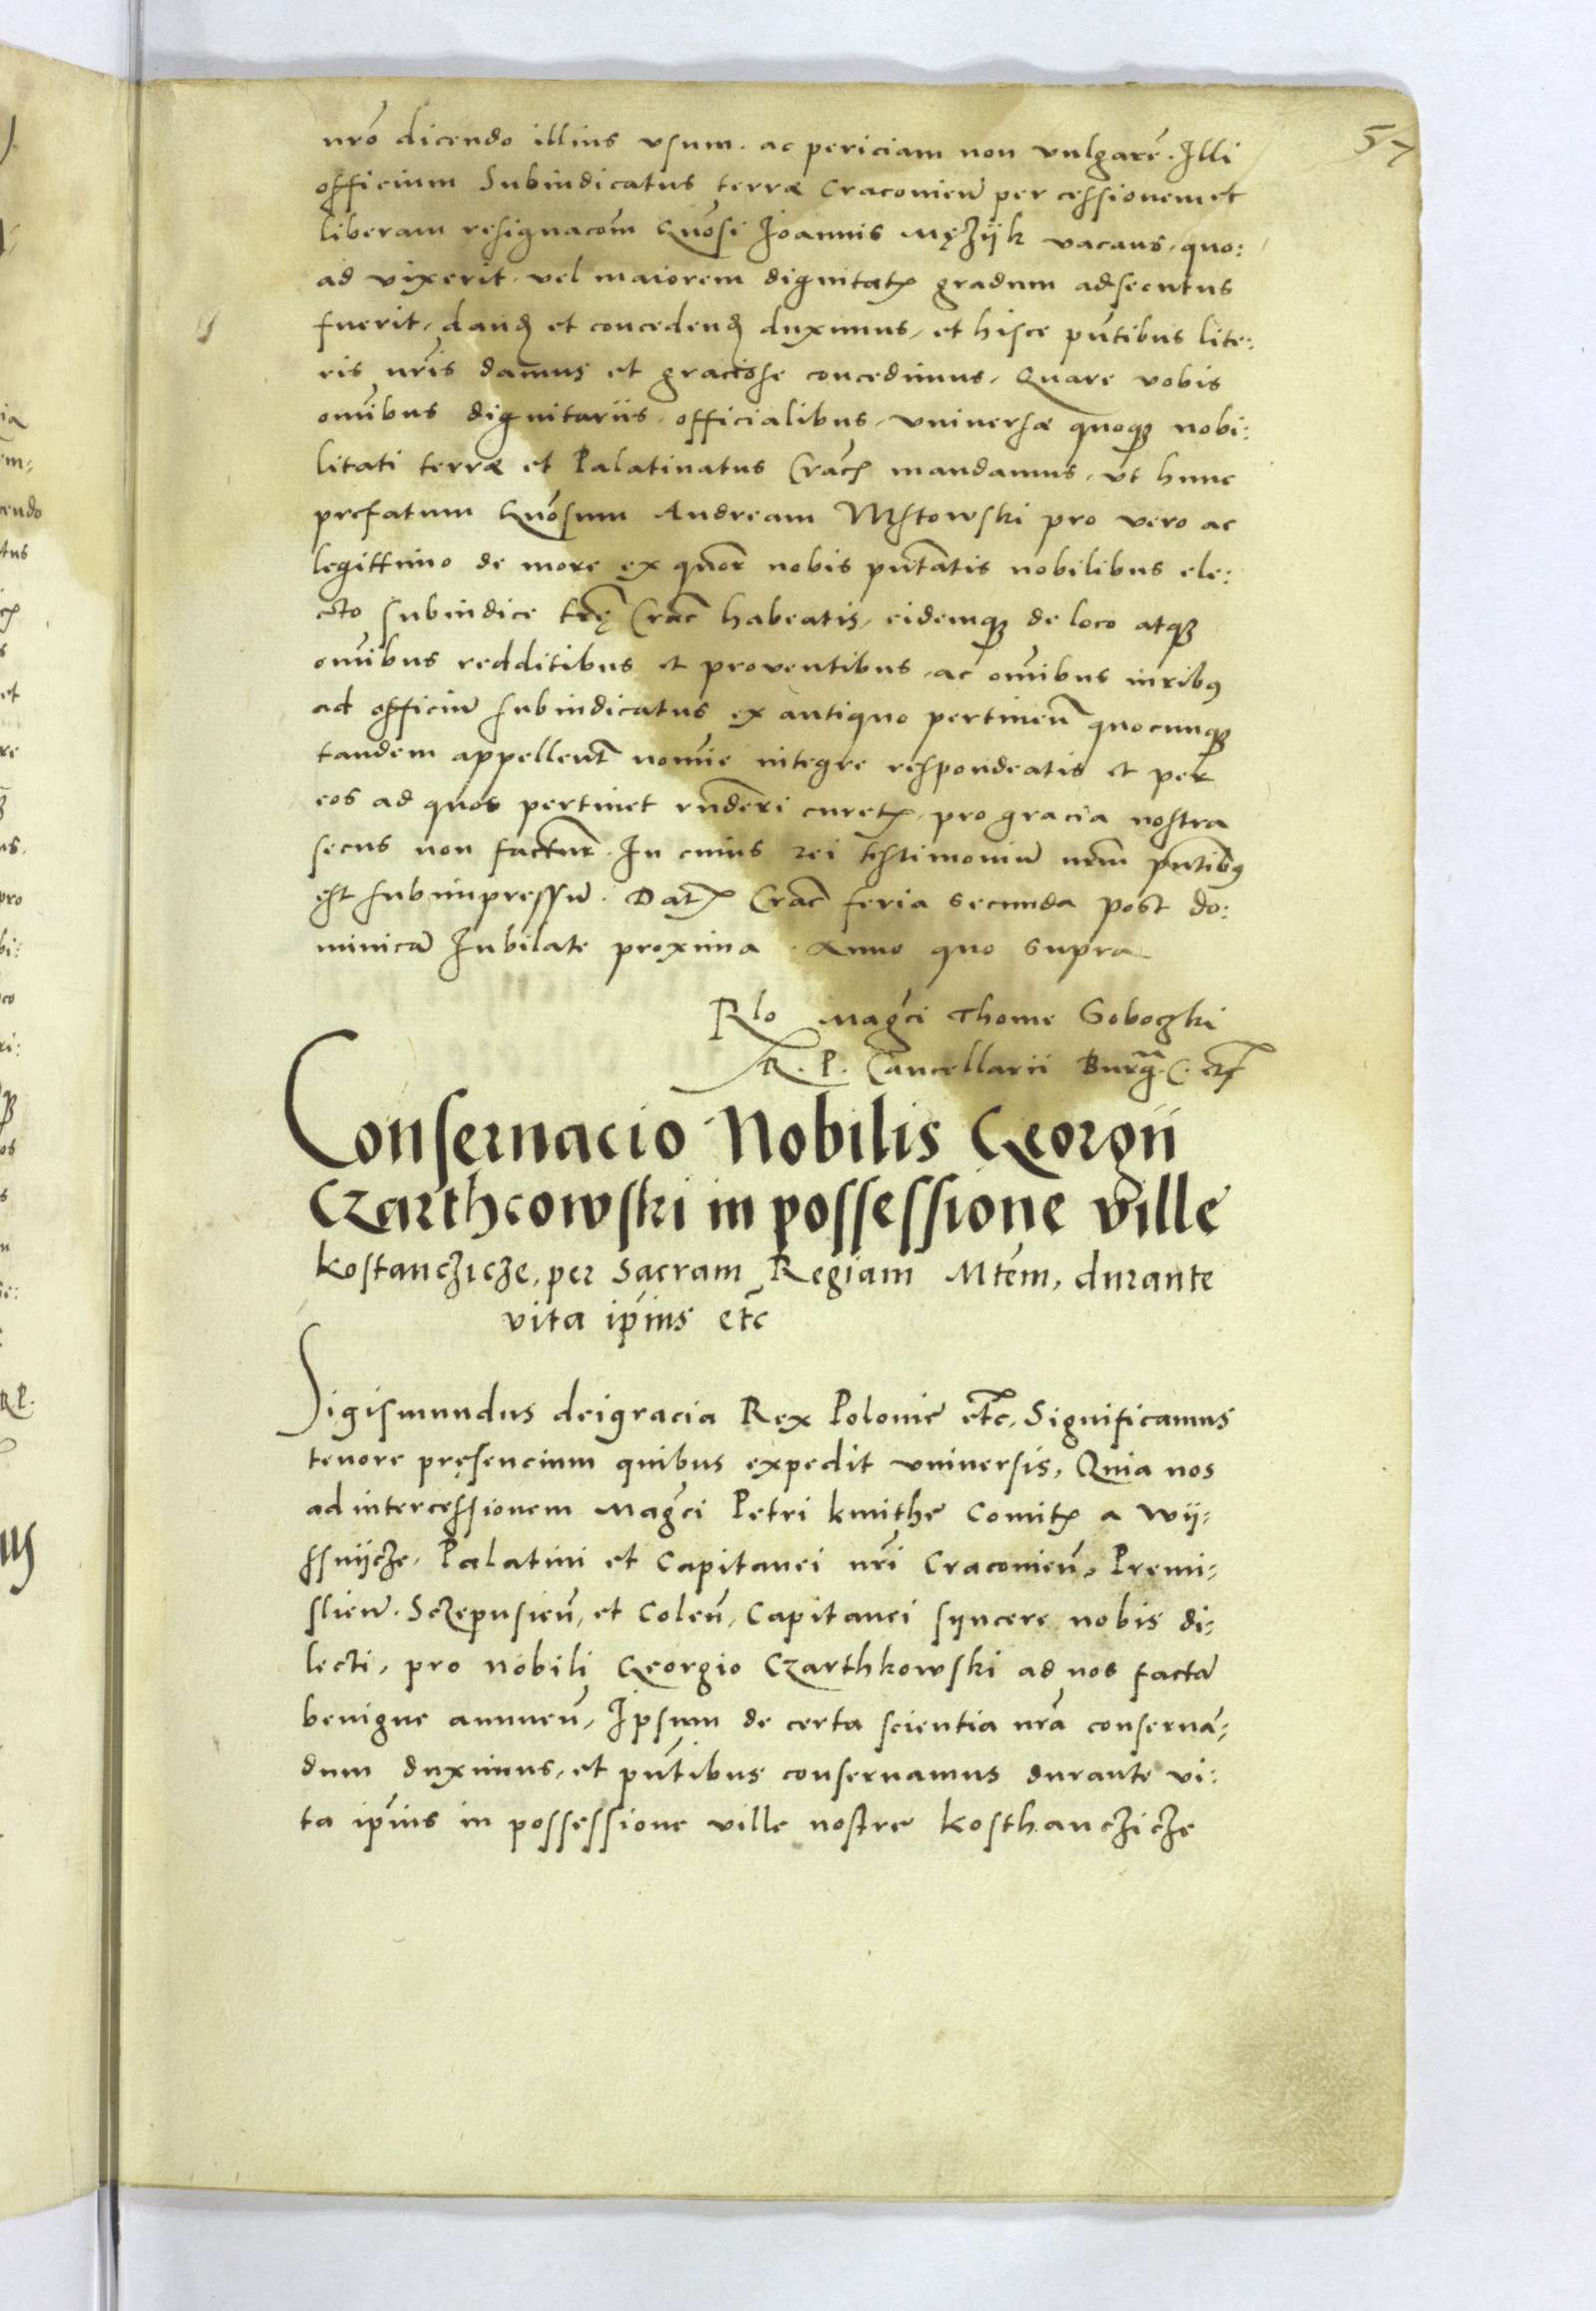 57
nrõ dicendo illius vsum. ac periciam non vulgarẽ. Illi
officium Subiudicatus terræ Cracovien̄ per cessionem et
liberam resignacõm Gnõsi Ioannis Mężijk vacans, quo:
ad vixerit vel maiorem dignitatꝭ gradum adsecutus
fuerit, dand et concedend duximus, et hisce pn̄tibus lite:
ris nrĩs damus et graciose concedimus. Quare vobis
omĩbus dignitariis officialibus, vniversæ quoqꝫ nobi:
litati terræ et Palatinatus Crac̄ mandamus, vt hunc
prefatum Gnõsum Andream Mstowski pro vero ac
legittimo de more ex quõr nobis pn̄tãtis nobilibus ele:
cto subiudice trę̃ Crac̄ habeatis, eidemqꝫ de loco atqꝫ
omĩbus redditibus et proventibus, ac omĩbus iuribꝰ
ad officiũ subiudicatus ex antiquo pertineñ quocunqꝫ
tandem appellent̄ nomĩe integre respondeatis et per
eos ad quos pertinet rñderi curetꝭ, pro gracia nostra
secus non factur̄. In cuius rei testimoniũ nrm̃ pn̄tibꝰ
est subimpressũ. Datꝭ Crac̄ feria secunda post do:
minicã Iubilate proxima Anno quo supra
Rlo Magc̃i Thome Soboczki
R. P. Cancellarii Burg. C. etc̄
Conseruacio Nobilis Georgii
Czarthcowski in possessione ville
Kostanczicze, per Sacram Regiam Mtẽm, durante
vita ip̃ius etc̄
Sigismundus deigracia Rex Polonie etc̄, Significamus
tenore pręsencium quibus expedit vniversis, Quia nos
ad intercessionem Magc̃i Petri kmithe Comitꝭ a Wij:
ssnijcze, Palatini et Capitanei nrĩ Cracovien̄, Premi:
slien̄. Sczepusien̄, et Colen̄, Capitanei sijncere nobis di:
lecti, pro nobili Georgio Czarthkowski ad nos factã
benigne annuen̄, Ipsum de certa scientia nrã conseruã:
dum duximus, et pn̄tibus conseruamus durante vi:
ta ip̃ius in possessione ville nostre Kosthanczicze